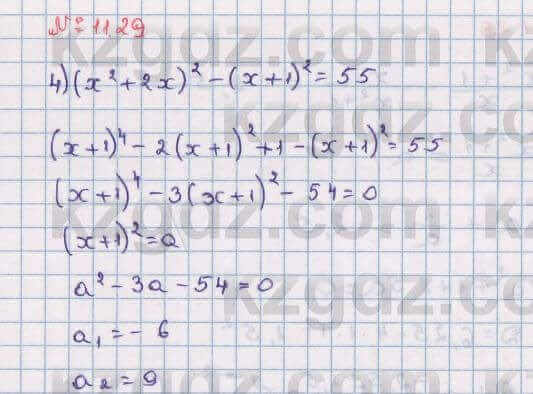 № 11.29
4) (x² + 2x)² - (x+1)² = 55
(x+1)⁴ - 2(x+1)² + 1 - (x+1)² = 55
(x+1)⁴ - 3(x+1)² - 54 = 0
(x+1)² = a
a² - 3a - 54 = 0
a₁ = - 6
a₂ = 9
kzgdz.com
kzgdz.com
kzgdz.com
kzgdz.com